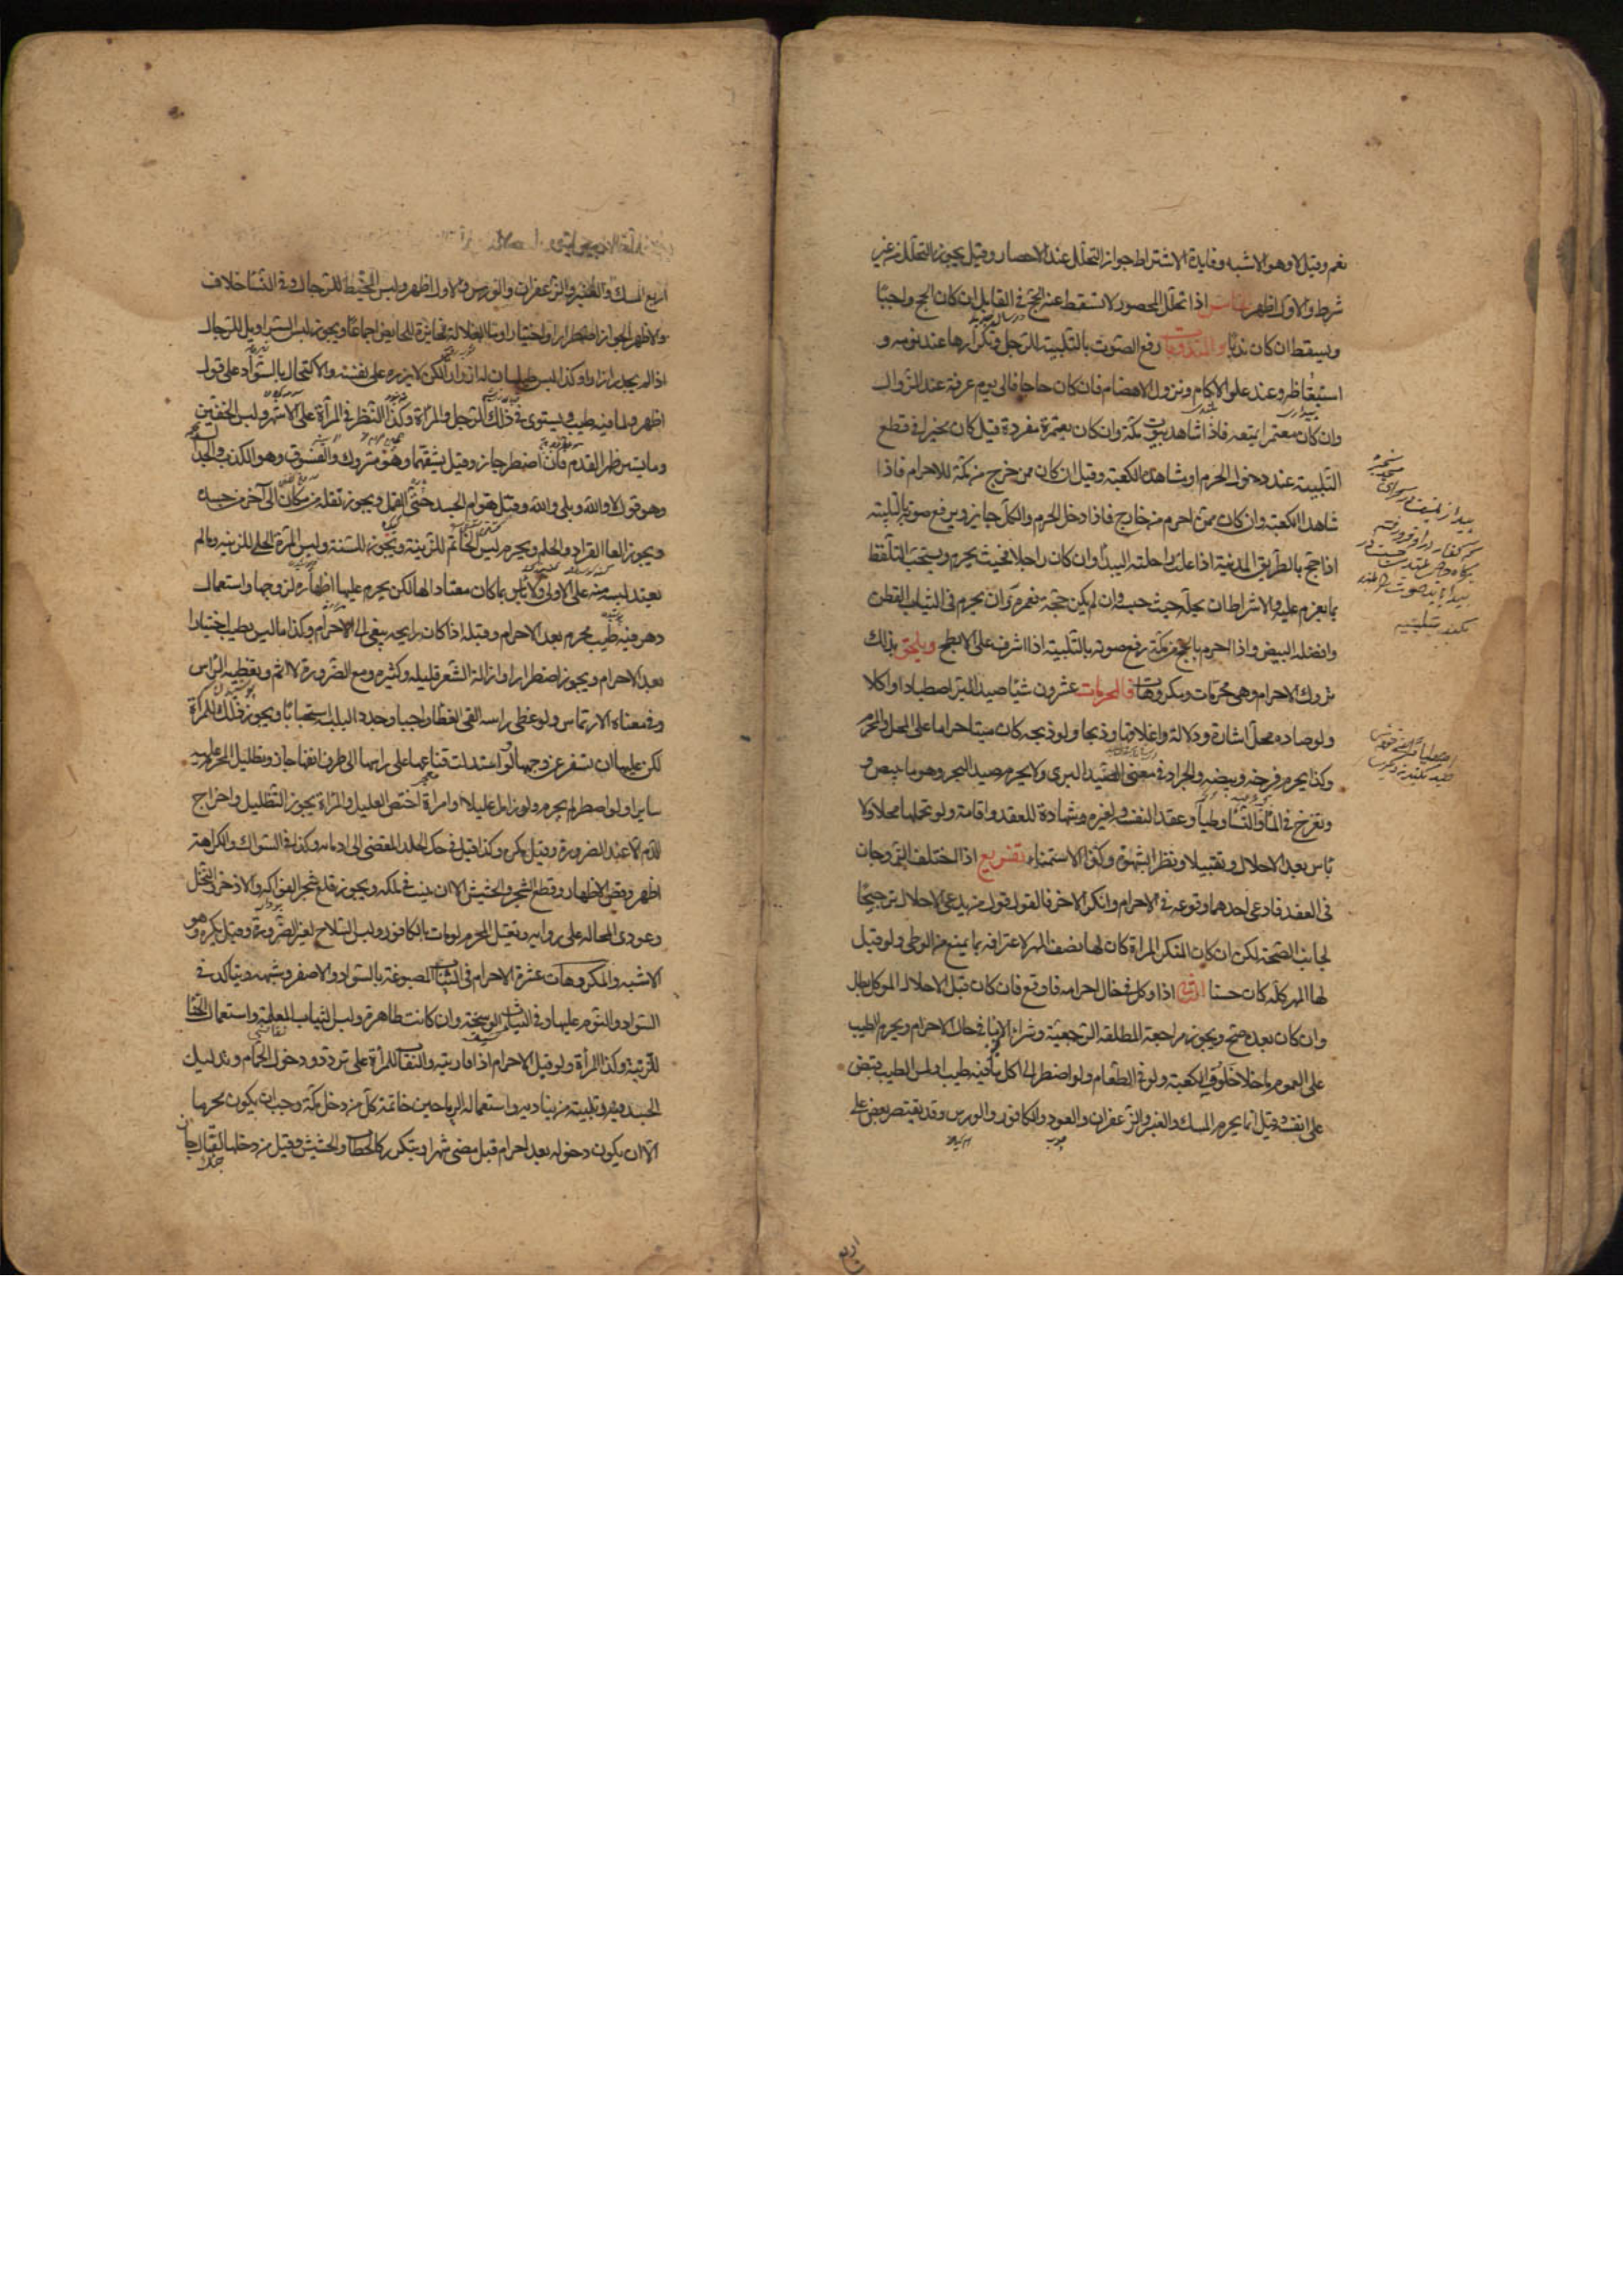 نعم وقيل لا وهو الاشبه وفايدة الاشتراط جواز التحلل عند الاحصار وقيل يجوز التحلل من غير
شرط والاول اظهر الخامس اذا تحلل المحصور لا يسقط عنه الحج في القابل ان كان الحج واجبا
ويسقط ان كان ندبا والمندوبات رفع الصوت بالتلبية للرجل وتكرارها عند نومه و
استيقاظه وعند علو الاكام ونزول الاهضام فان كان حاجا فالى يوم عرفة عند الزوال
وان كان معتمرا بمتعه فاذا شاهد بيوت مكة وان كان بعمرة مفردة قيل كان مخيرا في قطع
التلبية عند دخول الحرم او مشاهدة الكعبة وقيل ان كان ممن خرج من مكة للاحرام فاذا
شاهد الكعبة وان كان ممن احرم من خارج فاذا دخل الحرم والكل جايز ويرفع صوته بالتلبيه
اذا حج بالطريق المدينة اذا علت راحلته البيدا وان كان راجلا فحيث يحرم ويستحب التلفظ
بما يعزم عليه والاشتراط ان يحله حيث حبسه وان لم يكن حجة فعمرة وان يحرم في الثياب القطن
وافضله البيض واذا احرم بالحج من مكة رفع صوته بالتلبية اذا اشرف على الابطح ويلحق بذلك
تروك الاحرام وهي محرمات ومكروهات فالمحرمات عشرون شيئا صيد البر اصطيادا واكلا
ولو صاده محل اشارة ودلالة واغلاقا وذبحا ولو ذبحه كان ميتا حراما على المحل والمحرم
وكذا يحرم فرخه وبيضه والجراد في معنى الصيد البري ولا يحرم صيد البحر وهو ما يبيض و
ويفرخ في الماء والنساء وطيا وعقدا لنفسه ولغيره وشهادة للعقد واقامة ولو تحملها محلا ولا
باس بعد الاحلال وتقبيلا ونظرا بشهوة وكذا الاستمناء تفريع اذا اختلف الزوجان
في العقد فادعى احدهما وقوعه في الاحرام وانكر الاخر فالقول قول من يدعي الاحلال ترجيحا
لجانب الصحة لكن ان كان المنكر المراة كان لها نصف المهر لاعترافه بما يمنع من الوطي ولو قيل
لها المهر كله كان حسنا الثاني اذا وكل في حال احرامه فاوقع فان كان قبل الاحلال الموكل بطل
وان كان بعده صح ويجوز مراجعة المطلقة الرجعية وشراء الاماء في حال الاحرام ويحرم الطيب
على العموم ما خلا خلوق الكعبة ولو في الطعام ولو اضطر الى اكل ما فيه طيب او لمس الطيب قبض
على انفه وقيل انما يحرم المسك والعنبر والزعفران والعود والكافور والورس وقد يقتصر بعض على
اربع
اربع المسك والعنبر والزعفران والورس والاول اظهر ولبس المخيط للرجال وفي النساء خلاف
والاظهر الجواز اضطرارا واختيارا واما الغلالة فجايزة للحايض اجماعا ويجوز لبس السراويل للرجال
اذا لم يجد ازارا وكذا لبس طيلسان له ازرار لكن لا يزره على نفسه والاكتحال بالسواد على قول
اظهر وبما فيه طيب ويستوي في ذلك الرجل والمراة وكذا النظر في المرآة على الاشهر ولبس الخفين
وما يستر ظهر القدم فان اضطر جاز وقيل يشقهما وهو متروك والفسوق وهو الكذب والجدال
وهو قول لا والله وبلى والله وقتل هوام الجسد حتى القمل ويجوز نقله من مكان الى آخر من جسده
ويجوز القاء القراد والحلم ويحرم لبس الخاتم للزينة ويجوز للسنة ولبس المرة الحلي للزينة وما لم
يعتد لبسه منه على الاولى ولا باس بما كان معتادا لها لكن يحرم عليها اظهاره لزوجها واستعمال
دهن فيه طيب محرم بعد الاحرام وقبله اذا كان رايحه يبقى الى الاحرام وكذا ما ليس بطيب اختيارا
بعد الاحرام ويجوز اضطرارا وازالة الشعر قليله وكثيره ومع الضرورة لا اثم وتغطيه الراس
وفي معناه الارتماس ولو غطى راسه القى الغطا واجبا وجدد التلبيه استحبابا ويجوز ذلك للمراة
لكن عليها ان تسفر عن وجهها ولو اسدلت قناعها على راسها الى طرف انفها جاز وتظليل المحرم عليه
سايرا ولو اضطر لم يحرم ولو زامل عليلا او امراة اختص العليل والمراة بجواز التظليل واخراج
الدم الا عند الضرورة وقيل يكره وكذا قيل في حك الجلد المفضي الى ادمائه وكذا في السواك والكراهة
اظهر وقص الاظفار وقطع الشجر والحشيش الا ان ينبت في ملكه ويجوز قلع شجر الفواكه والاذخر والنخل
وعودي المحاله على روايه وتغسيل المحرم لو مات بالكافور ولبس السلاح لغير الضرورة وقيل يكره وهو
الاشبه والمكروهات عشرة الاحرام في الثياب المصبوغة بالسواد والاصفر وشبهه ويتاكد في
السواد والنوم عليها وفي الثياب الوسخة وان كانت طاهرة ولبس الثياب المعلمة واستعمال الحنا
للزينة وكذا للمرأة ولو قبل الاحرام اذا قاربته والنقاب للمرأة على تردد ودخول الحمام وتدليك
الجسد فيه وتلبيته من يناديه واستعماله الرياحين خاتمة كل من دخل مكة وجب ان يكون محرما
الا ان يكون دخوله بعد احرام قبل مضي شهر او يتكرر كالحطاب والحشيش وقيل من دخلها لقتال جاز